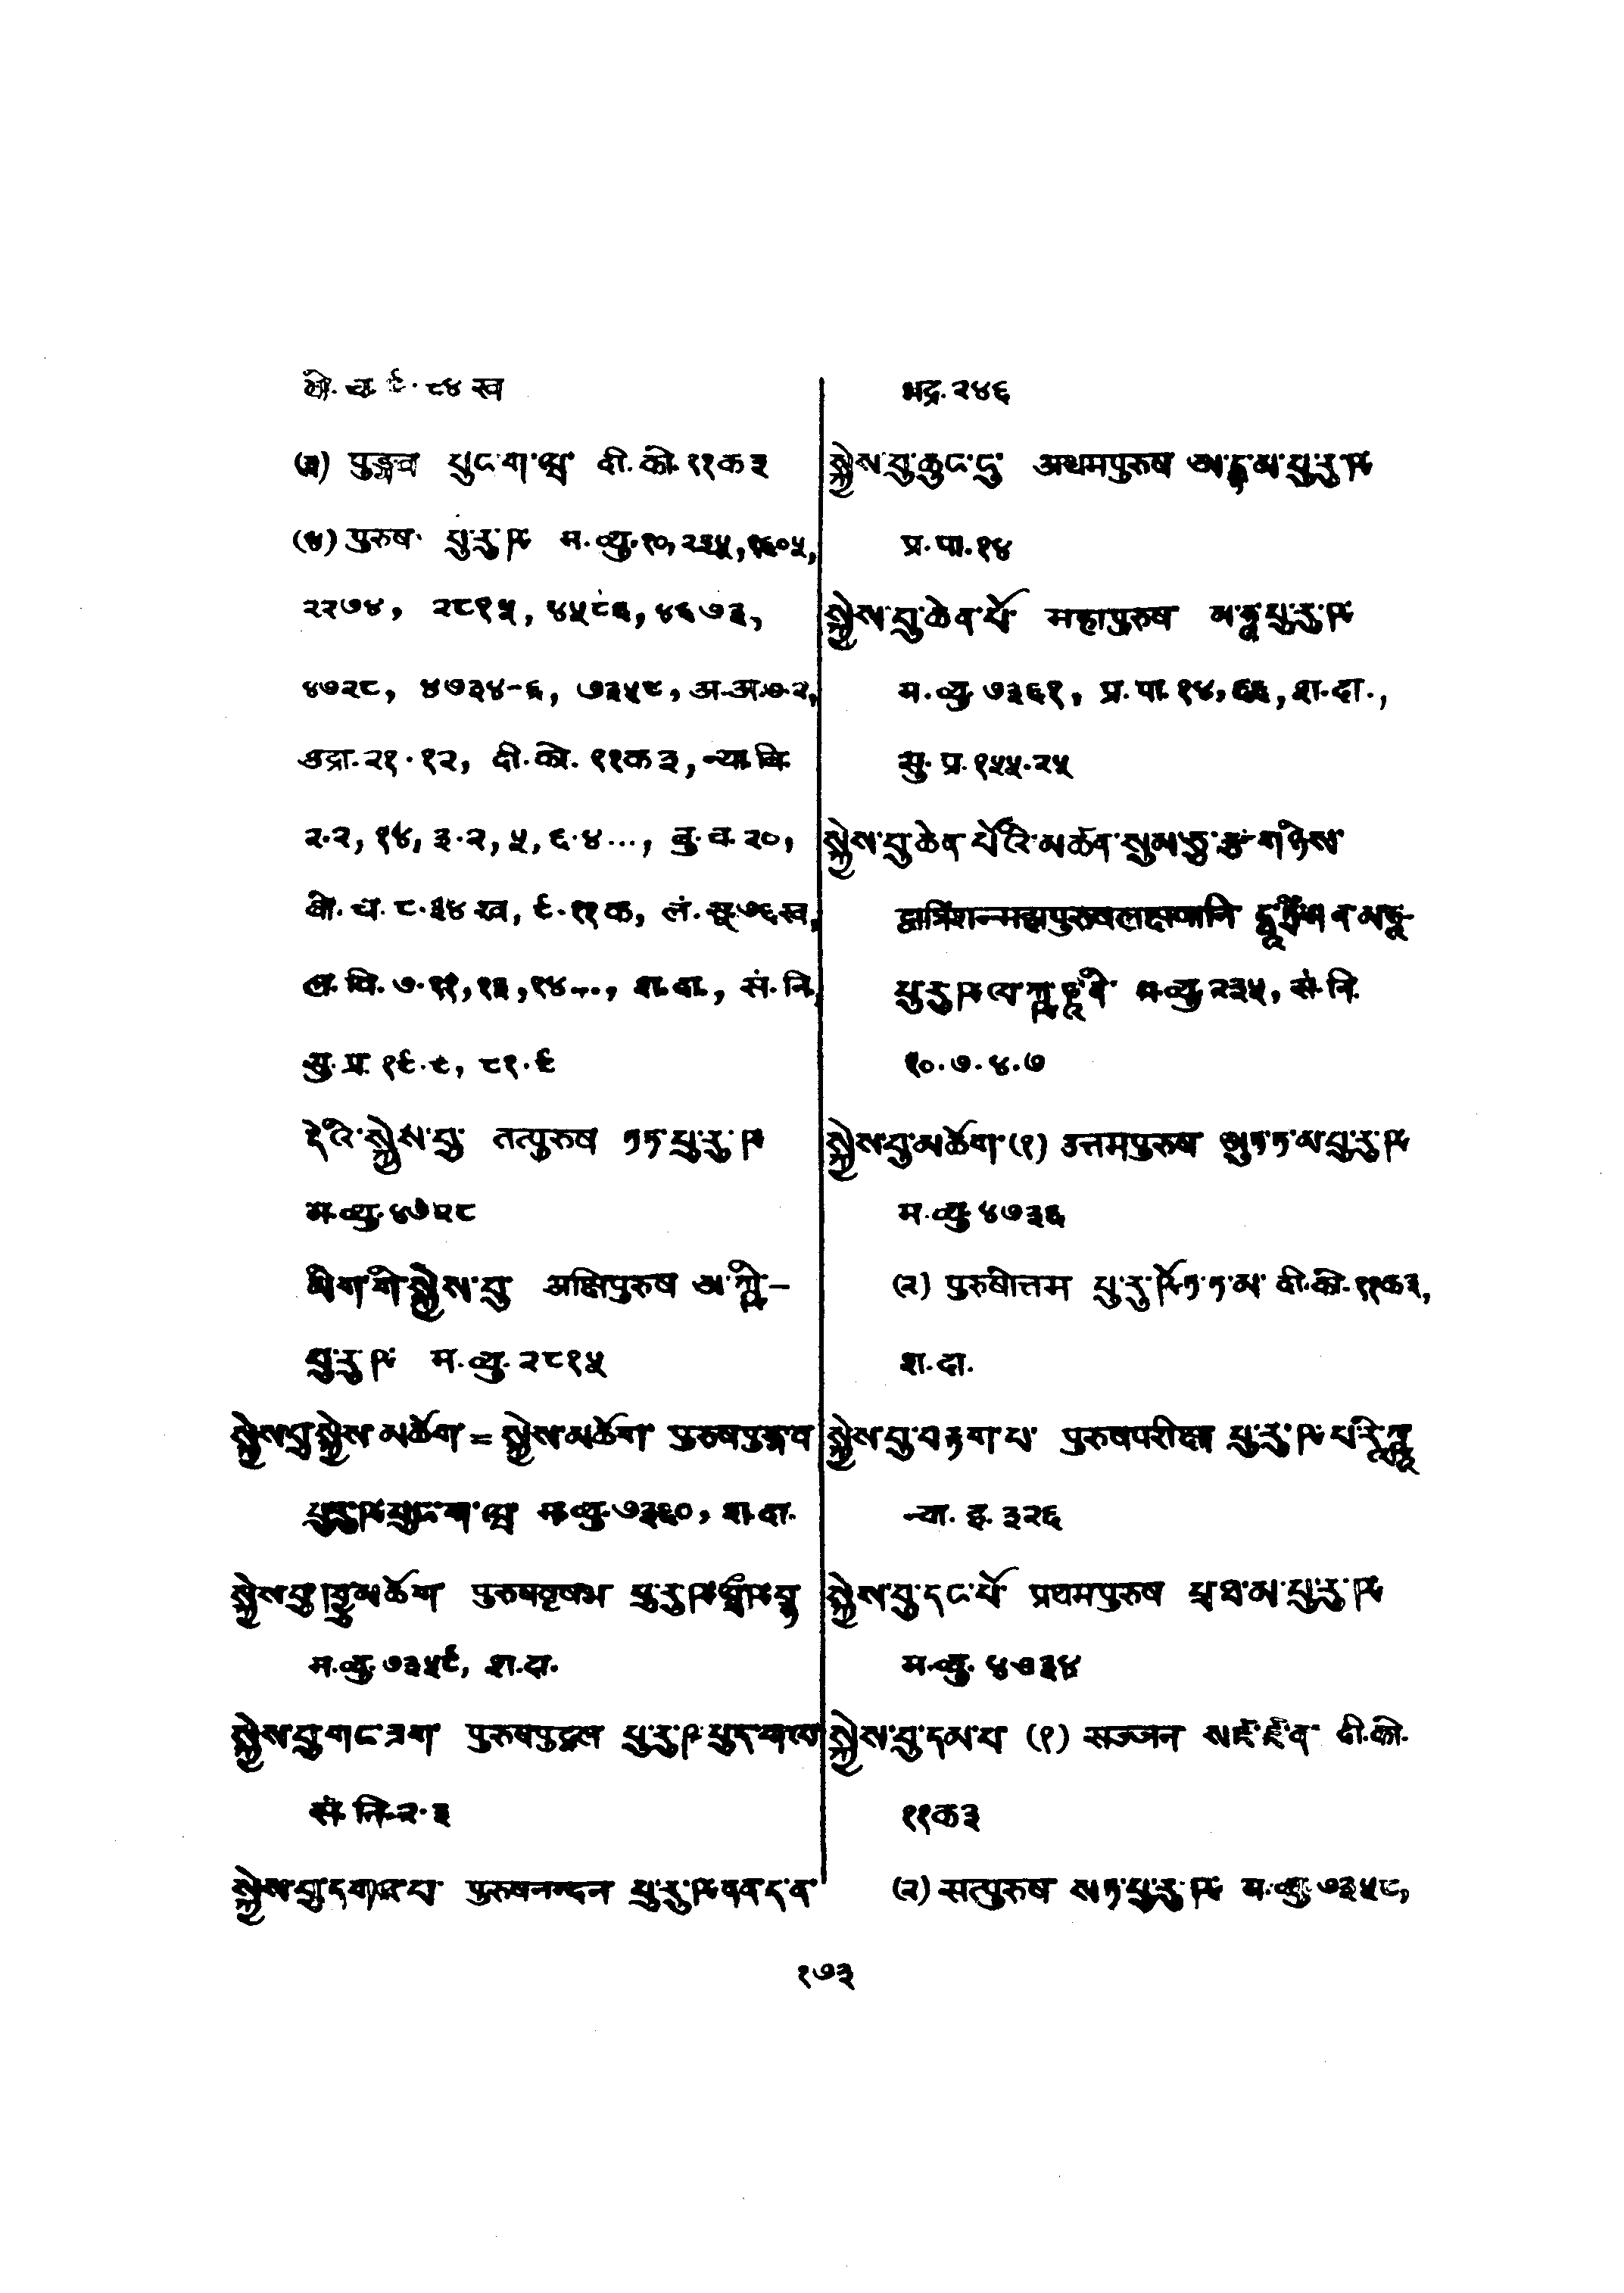 बो. च. ९.८४ ख
(३) पुङ्गव པུང་ག་ཝ दी. को. ११क३
(४) पुरुष པུ་རུ་ཥ म. व्यु. १०, २३५, १६०५,
२२७४, २८१५, ४५८६, ४६७३,
४७२८, ४७३४-६, ७३५८, अ. अ. ७.२,
उद्रा. २१.१२, दी. को. ११क३, न्या. बि.
२.२, १४, ३.२, ५, ६.४..., बु. च. २०,
बो. च. ८.३४ख, ९.११क, लं. सू. ७६ख,
ल. वि. ७.११, १३, १४..., श. दा., सं. नि.
सु. प्र. १९.८, ८१.९
དེའི་སྐྱེས་བུ་ तत्पुरुष ཏཏ་པུ་རུ་ཥ
म. व्यु. ४७२८
མིག་གི་སྐྱེས་བུ अक्षिपुरुष ཨ་ཀྵི་–
པུ་རུ་ཥ म. व्यु. २८१५
སྐྱེས་བུ་སྐྱེས་མཆོག = སྐྱེས་མཆོག पुरुषपुङ्गव
པུ་རུ་ཥ་པུང་ག་ཝ म. व्यु. ७३६०, श. दा.
སྐྱེས་བུ་ཁྱུ་མཆོག पुरुषवृषभ
म. व्यु. ७३५९, श. दा.
སྐྱེས་བུ་གང་ཟག पुरुषपुद्गल པུ་རུ་ཥ་པུད་ག་ལ
सं. नि. २.३
སྐྱེས་བུ་དགའ་བ पुरुषनन्दन པུ་རུ་ཥ་ནན་ད་ན
भद्र. २४६
སྐྱེས་བུ་ཆུང་ངུ अधमपुरुष ཨ་དྷ་མ་པུ་རུ་ཥ
प्र. पा. १४
སྐྱེས་བུ་ཆེན་པོ་ महापुरुष མ་ཧཱ་པུ་རུ་ཥ
म. व्यु. ७३६१, प्र. पा. १४, ६६, श. दा.,
सु. प्र. १५५.२५
སྐྱེས་བུ་ཆེན་པོའི་མཚན་སུམ་ཅུ་རྩ་གཉིས་
द्वात्रिंशन्महापुरुषलक्षणानि དྭཱ་ཏྲིཾ་ཤན་མ་ཧཱ་
པུ་རུ་ཥ་ལ་ཀྵ་ཎཱ་ནི म. व्यु. २३५, सं. नि.
१०.७.४.७
སྐྱེས་བུ་མཆོག་ (१) उत्तमपुरुष ཨུཏ་ཏ་མ་པུ་རུ་ཥ
म. व्यु. ४७३६
(२) पुरुषोत्तम པུ་རུ་ཥོཏ་ཏ་མ दी. को. ११क३,
श. दा.
སྐྱེས་བུ་བརྟག་པ་ पुरुषपरीक्षा པུ་རུ་ཥ་པ་རཱི་ཀྵཱ
३२६
སྐྱེས་བུ་དང་པོ་ प्रथमपुरुष པྲ་ཐ་མ་པུ་རུ་ཥ
म. व्यु. ४७३४
སྐྱེས་བུ་དམ་པ (१) सज्जन སཛ྄་ཛ་ན दी. को.
११क३
(२) सत्पुरुष སཏ་པུ་རུ་ཥ म. व्यु. ७३५८,
१७३